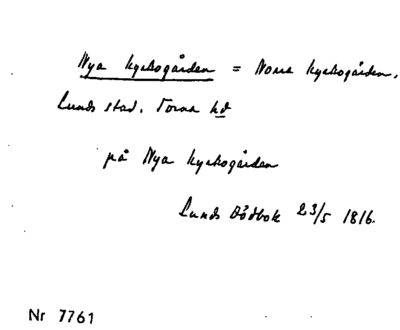 Nya kyrkogården = Norra kyrkogården,
Lunds stad. Torna hd
på Nya kyrkogården
Lunds Dödbok 23/5 1816.
Nr 7761